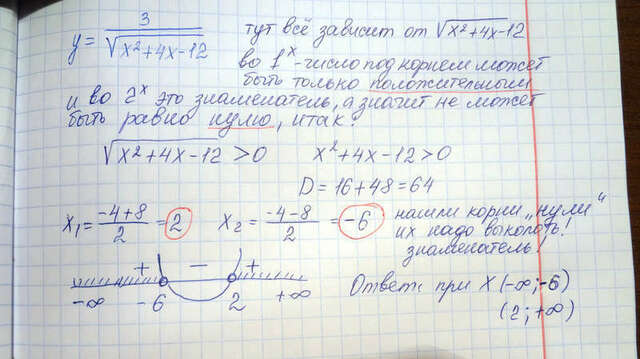 y = 3/√(x²+4x-12) тут всё зависит от √(x²+4x-12)
во 1ˣ - число под корнем может
быть только положительным
и во 2ˣ это знаменатель, а значит не может
быть равно нулю, итак:
√(x²+4x-12) > 0 x²+4x-12 > 0
D = 16+48 = 64
x₁ = (-4+8)/2 = 2 x₂ = (-4-8)/2 = -6 нашли корни „нули“
их надо выколоть!
знаменатель!
+ - +
-∞ -6 2 +∞
Ответ: при x (-∞;-6)
(2;+∞)